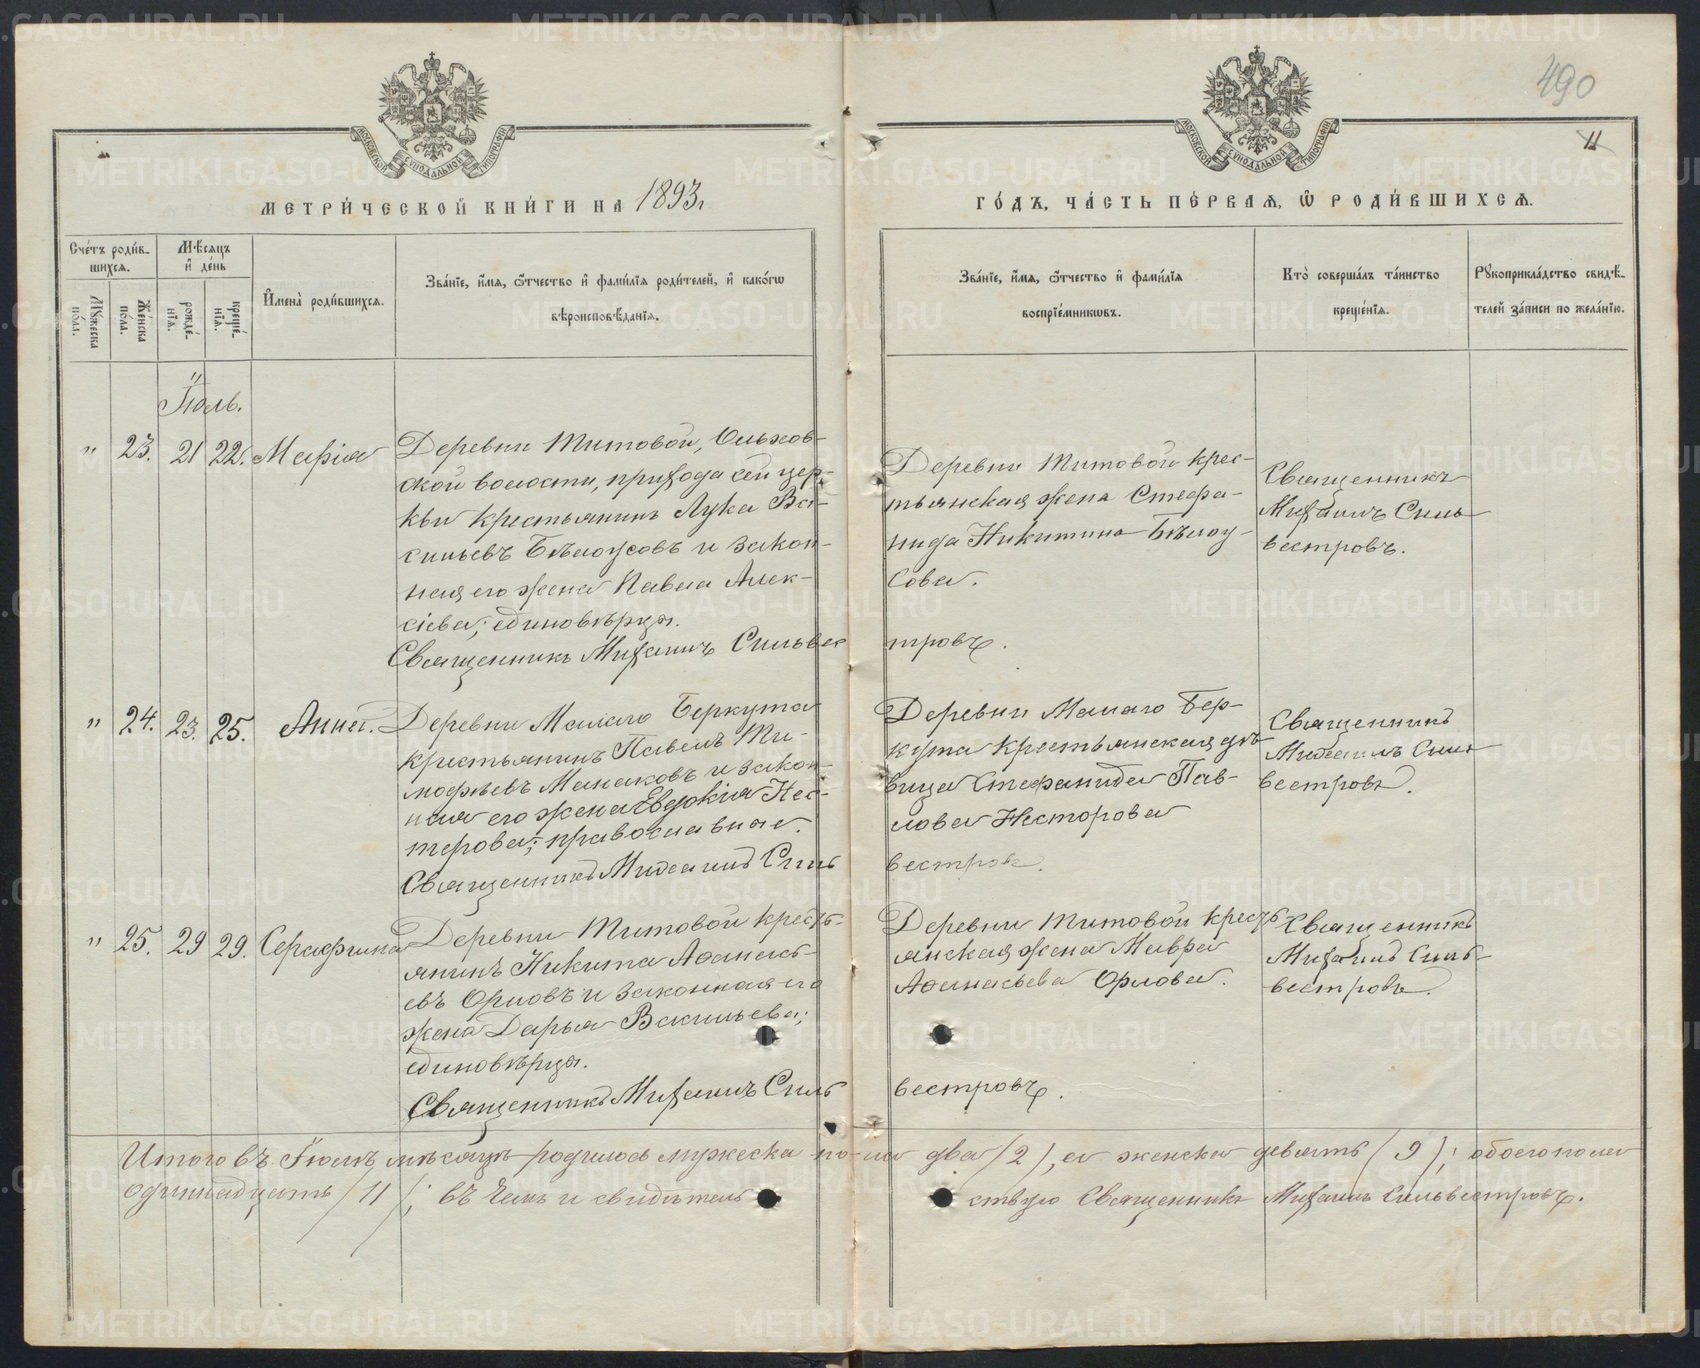 490
11
МОСКОВСКОЙ СѴНОДАЛЬНОЙ ТИПОГРАФІИ
МОСКОВСКОЙ СѴНОДАЛЬНОЙ ТИПОГРАФІИ
МЕТРИ́ЧЕСКОЙ КНИ́ГИ НА 1893 г.
ГО́ДЪ, ЧА́СТЬ ПЕ́РВАЯ, Ѽ РОДИ́ВШИХСЯ.
Сче́тъ роди́в-
шихся.
Мѣ́сяцъ
и҆ де́нь
Мꙋ́жеска по́ла.
Же́нска по́ла.
рожде́-
нїѧ.
креще́-
нїѧ.
И҆мена̀ роди́вшихся.
Зва́нїе, и҆́мѧ, ѻ҆́тчество и҆ фами́лїѧ роди́телей, и҆ како́гѡ
вѣроисповѣ́данїѧ.
Зва́нїе, и҆́мѧ, ѻ҆́тчество и҆ фами́лїѧ
воспрїе́мникѡвъ.
Кто̀ соверша́лъ та́инство
креще́нїѧ.
Рꙋкоприкла́дство свидѣ́-
телей за́писи по жела́нїю.
Іюль.
" 23. 21 22. Марія
Деревни Титовой, Ольхов-
ской волости, прихода сей цер-
кви крестьянинъ Лука Ва-
сильевъ Бѣлоусовъ и закон-
ная его жена Павла Алек-
сіева; единовѣрцы.
Священникъ Михаилъ Сильвес
тровъ.
Деревни Титовой крес-
тьянская жена Стефа-
нида Никитина Бѣлоу-
сова.
Священникъ
Михаилъ Силь-
вестровъ.
" 24. 23. 25. Анна.
Деревни Малаго Беркута
крестьянинъ Павелъ Ти-
мофѣевъ Минаковъ и закон-
ная его жена Евдокія Нес-
терова; православные.
Священникъ Михаилъ Силь
вестровъ.
Деревни Малаго Бер-
кута крестьянская дѣ-
вица Стефанида Пав-
лова Несторова
Священникъ
Михаилъ Силь-
вестровъ.
" 25. 29 29. Серафима
Деревни Титовой кресть-
янинъ Никита Аѳанась-
евъ Орловъ и законная его
жена Дарья Васильева;
единовѣрцы.
Священникъ Михаилъ Силь
вестровъ.
Деревни Титовой кресть-
янская жена Мавра
Аѳанасьева Орлова.
Священникъ
Михаилъ Силь-
вестровъ.
Итого въ Іюлѣ мѣсяцѣ родилось мужеска по-ла два /2/, а женска девять /9/; обоего пола
одиннадцать /11/; въ чемъ и свидѣтель ствую Священникъ Михаилъ Сильвестровъ.
METRIKI.GASO-URAL.RU